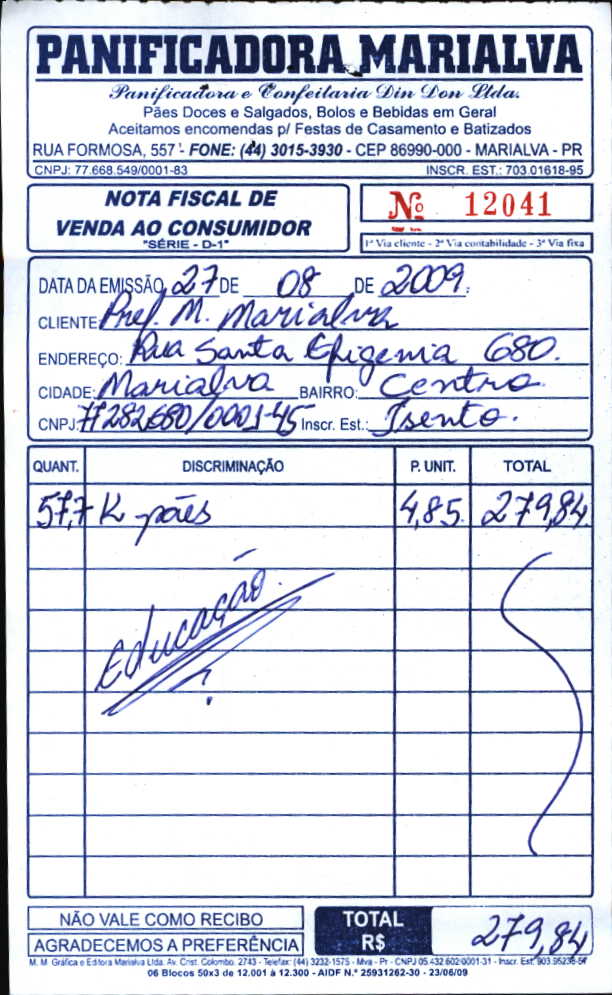 PANIFICADORA MARIALVA
Panificadora e Confeitaria Din Don Ltda.
Pães Doces e Salgados, Bolos e Bebidas em Geral
Aceitamos encomendas p/ Festas de Casamento e Batizados
RUA FORMOSA, 557 - FONE: (44) 3015-3930 - CEP 86990-000 - MARIALVA - PR
CNPJ: 77.668.549/0001-83 INSCR. EST.: 703.01618-95
NOTA FISCAL DE
VENDA AO CONSUMIDOR
"SÉRIE - D-1"
Nº 12041
1ª Via cliente - 2ª Via contabilidade - 3ª Via fixa
DATA DA EMISSÃO 27 DE 08 DE 2009.
CLIENTE Pref. M. Marialva
ENDEREÇO: Rua Santa Efigenia 680.
CIDADE: Marialva BAIRRO: Centro
CNPJ: 77282680/0001-45 Inscr. Est.: Isento.
QUANT. DISCRIMINAÇÃO P. UNIT. TOTAL
57,7 K pães 4,85 279,84
Educação
NÃO VALE COMO RECIBO
AGRADECEMOS A PREFERÊNCIA
TOTAL R$ 279,84
M. M. Gráfica e Editora Marialva Ltda. Av. Crist. Colombo, 2743 - Telefax: (44) 3232-1575 - Mva - Pr - CNPJ 05.432.602/0001-31 - Inscr. Est.
06 Blocos 50x3 de 12.001 à 12.300 - AIDF N.º 25931262-30 - 23/06/09